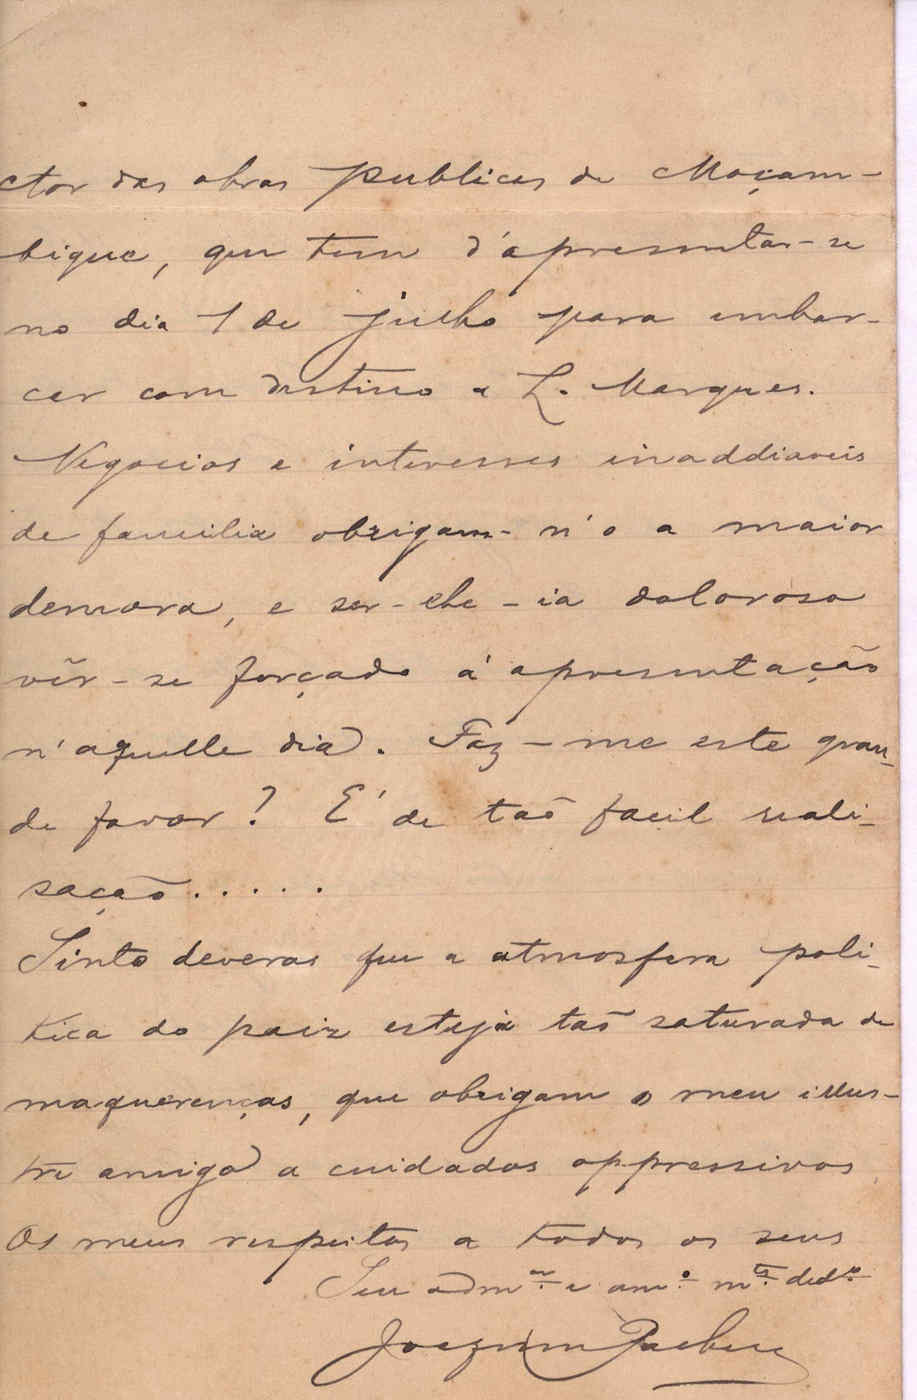 ctor das obras publicas de Moçam-
bique, que tem d'apresentar-se
no dia 1 de julho para embar-
car com destino a L. Marques.
Negocios e interesses inaddiaveis
de familia obrigam-n'o a maior
demora, e ser-lhe-ia doloroso
vêr-se forçado á apresentação
n'aquelle dia. Faz-me este gran-
de favor? E' de tão facil reali-
sação.....
Sinto deveras que a atmosfera poli-
tica do paiz esteja tão saturada de
maquerenças, que obrigam o meu illus-
tre amigo a cuidados oppressivos
Os meus respeitos a todos os seus
Seu adm.or e am.o m.to ded.o
Joaquim Pacheco